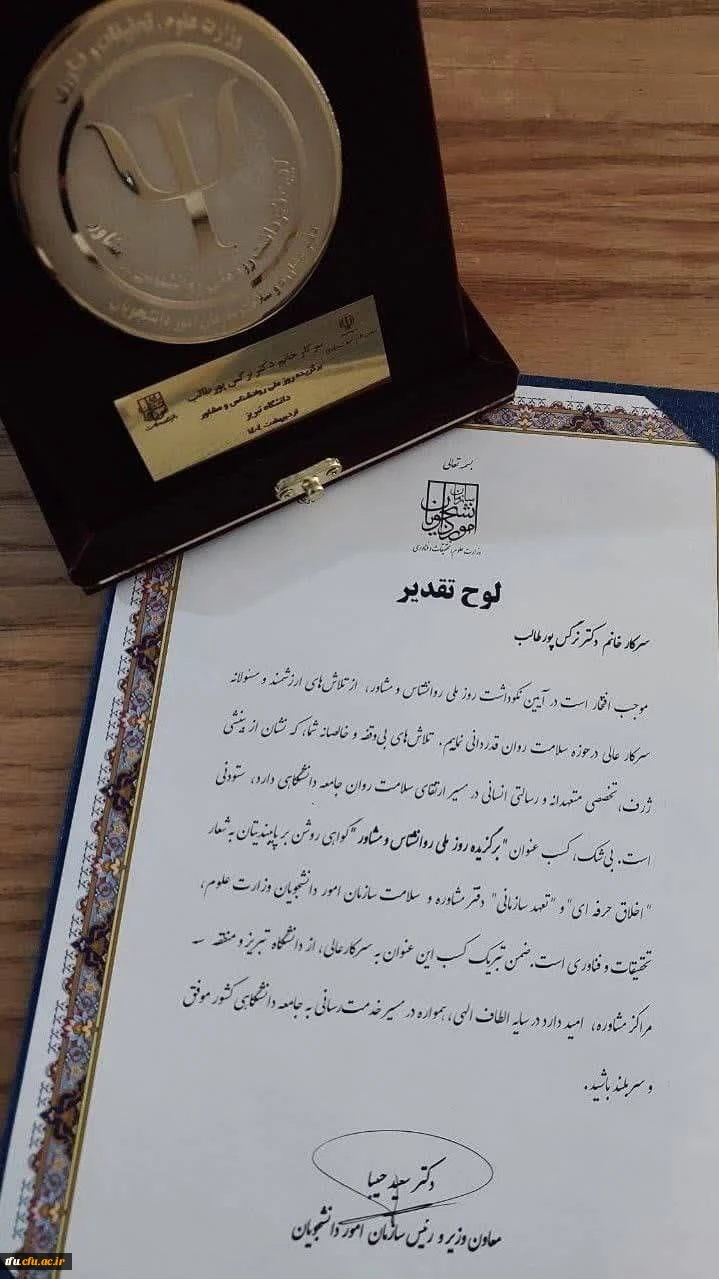 وزارت علوم، تحقیقات و فناوری
سرکار خانم دکتر نرگس پورطالب
برگزیده روز ملی روانشناس و مشاور
دانشگاه تبریز
بسمه تعالی
سازمان امور دانشجویان
وزارت علوم، تحقیقات و فناوری
لوح تقدیر
سرکار خانم دکتر نرگس پورطالب
موجب افتخار است در آیین نکوداشت روز ملی روانشناس و مشاور، از تلاش‌های ارزشمند و مسئولانه
سرکار عالی در حوزه سلامت روان قدردانی نمایم. تلاش‌های بی‌وقفه و خالصانه شما، که نشان از بینشی
ژرف، تخصصی متعهدانه و رسالتی انسانی در مسیر ارتقای سلامت روان جامعه دانشگاهی دارد، ستودنی
است. بی‌شک، کسب عنوان "برگزیده روز ملی روانشناس و مشاور" گواهی روشن بر پایبندیتان به شعار
"اخلاق حرفه ای" و "تعهد سازمانی" دفتر مشاوره و سلامت سازمان امور دانشجویان وزارت علوم،
تحقیقات و فناوری است. ضمن تبریک کسب این عنوان به سرکارعالی، از دانشگاه تبریز و منطقه ـ
مراکز مشاوره، امید دارد در سایه الطاف الهی، همواره در مسیر خدمت‌رسانی به جامعه دانشگاهی کشور موفق
و سربلند باشید.
دکتر سعید حبیبا
معاون وزیر و رئیس سازمان امور دانشجویان
tfu.cfu.ac.ir